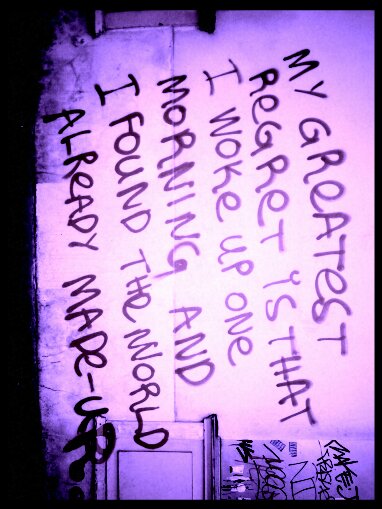 MY GREATEST
REGRET IS THAT
I WOKE UP ONE
MORNING AND
I FOUND THE WORLD
ALREADY MADE-UP...